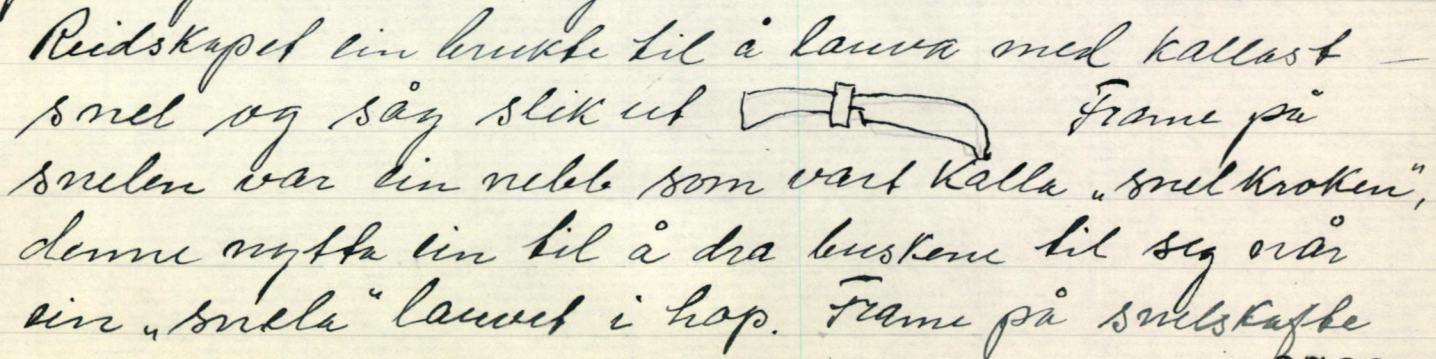 Reidskapet ein brukte til å lauva med kallast –
snel og såg slik ut Frame på
snelen var ein nebb som vart kalla „snelkroken",
denne nytta ein til å dra buskene til seg når
ein „snela" lauvet i hop. Frame på snelskafte